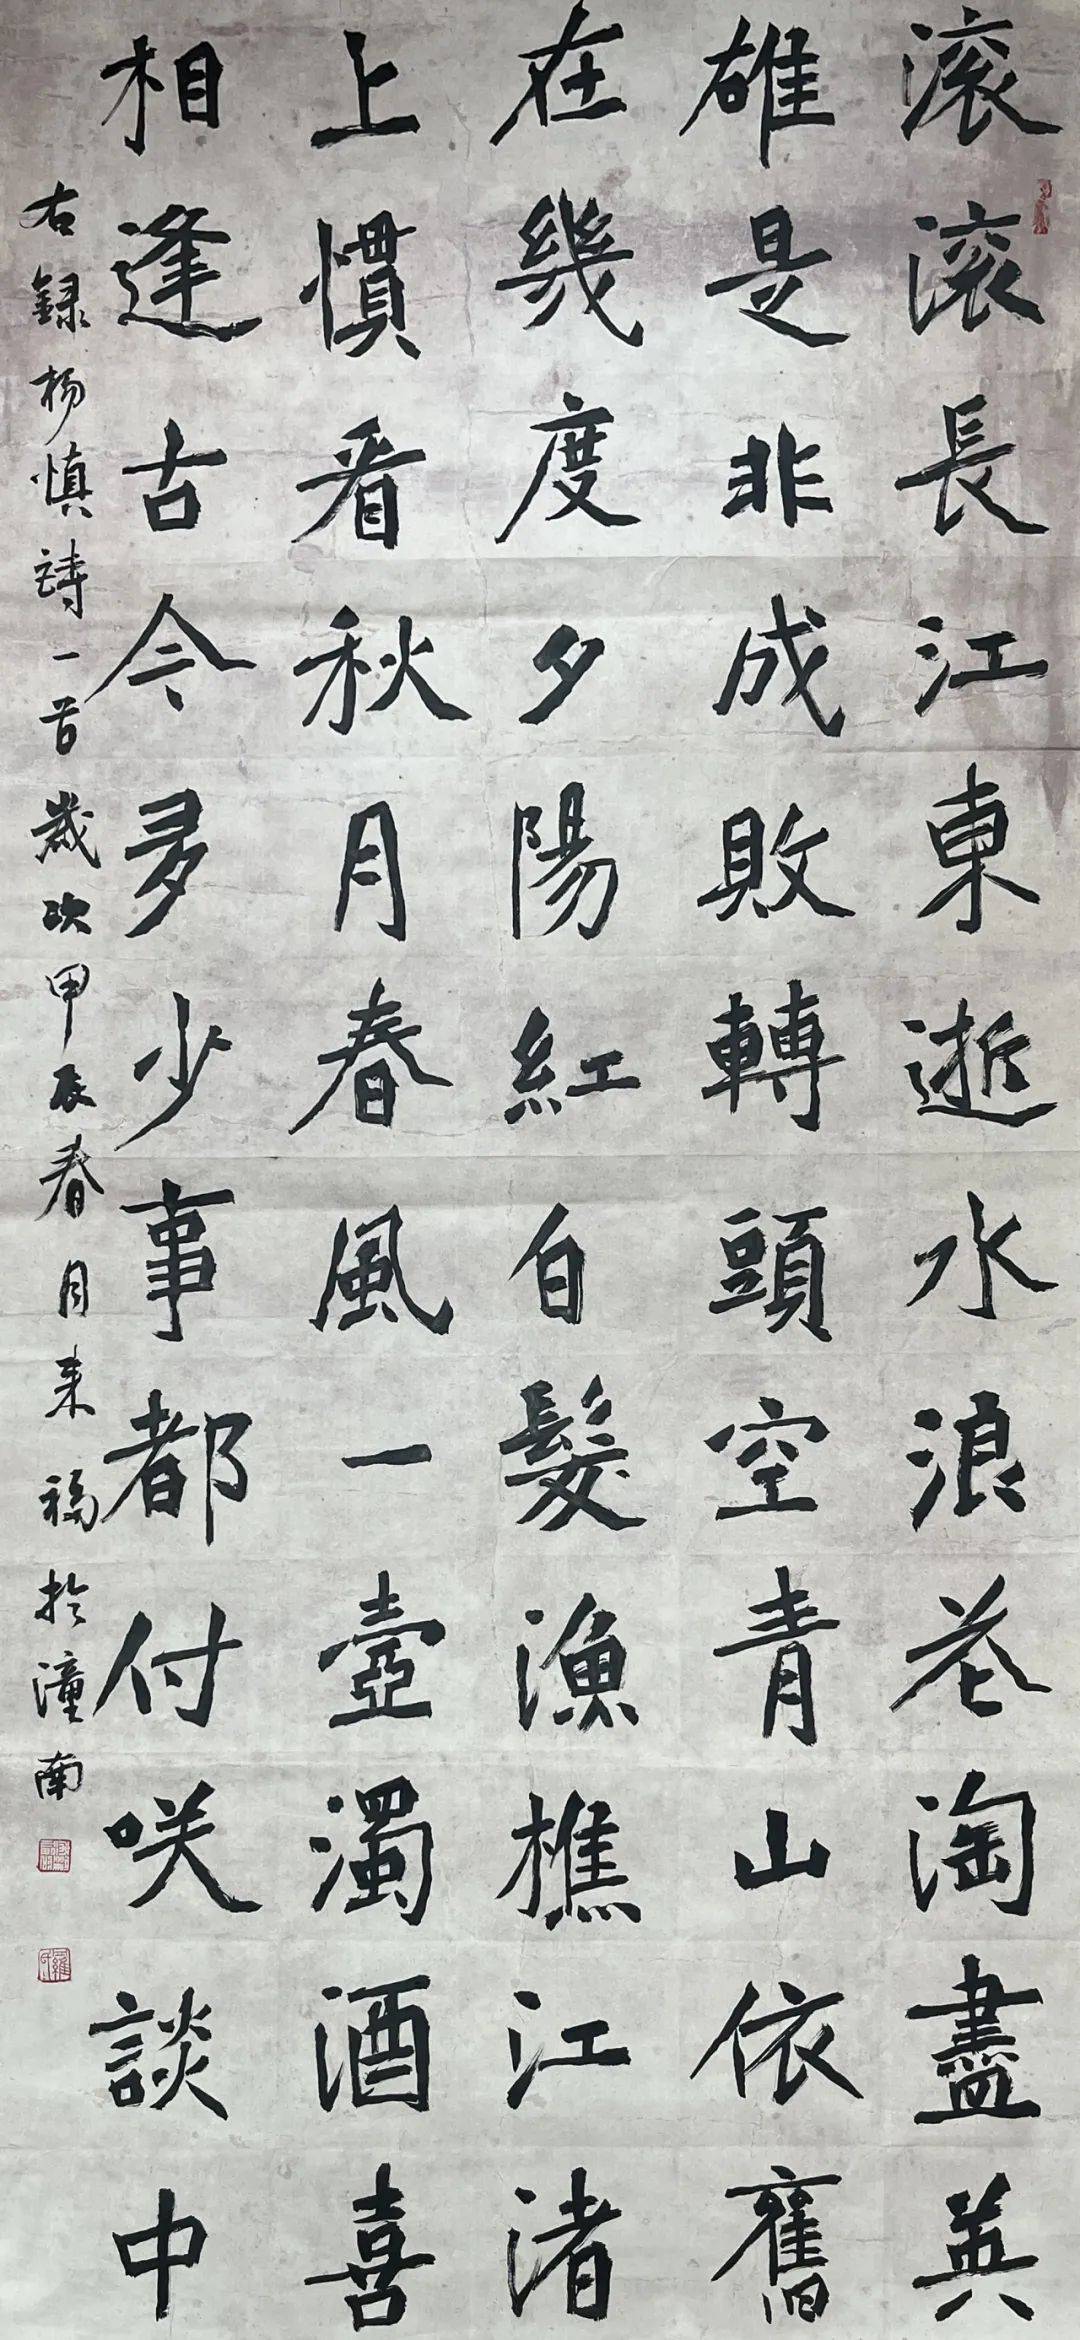 滚滚長江東逝水浪花淘盡英
雄是非成敗轉頭空青山依舊
在幾度夕陽紅白髮漁樵江渚
上慣看秋月春風一壺濁酒喜
相逢古今多少事都付咲談中
右録楊慎詩一首歲次甲辰春月来福於潼南